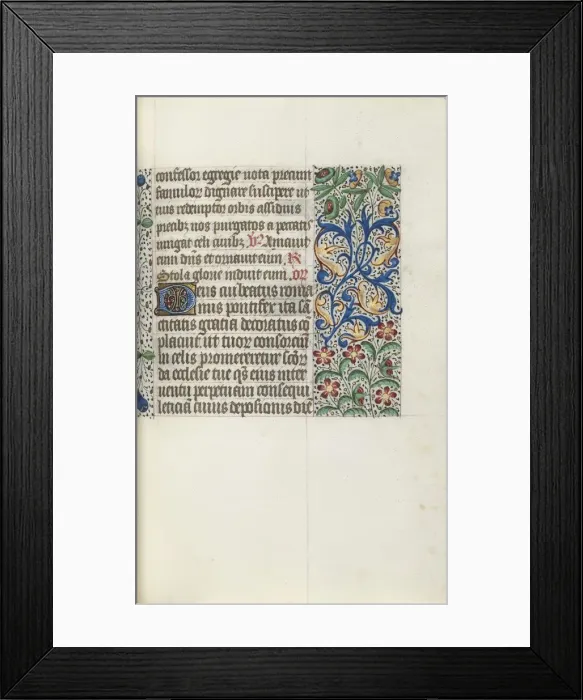 confessor egregie uota precum
famuloꝝ dignare suscipere ut
eius redemptor orbis assiduis
precibꝫ nos purgatos a peccatis
iungat celi ciuibꝫ ℣ Amauit
eum dn̄s et ornauit eum. ℟
Stola glorie induit eum. or̄
Deus cui beatus roma
nus pontifex ita sā
citatis gratia decoratus cō
placuit ut tuor consorciū
in celis promereretur scōr
da ecclesie tue qs̄ eius inter
uentu perpetuam consequi
leticiā cuius deposicionis die